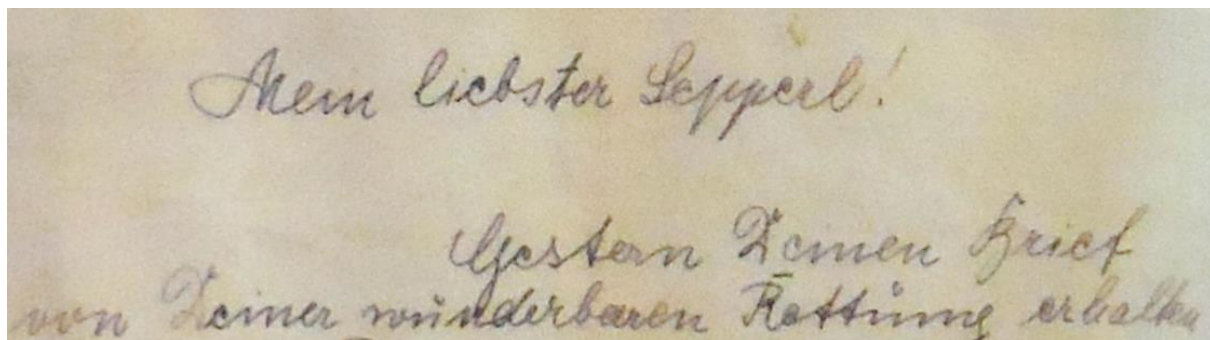 Mein liebster Sepperl!
Gestern Deinen Brief
von Deiner wunderbaren Rettung erhalten